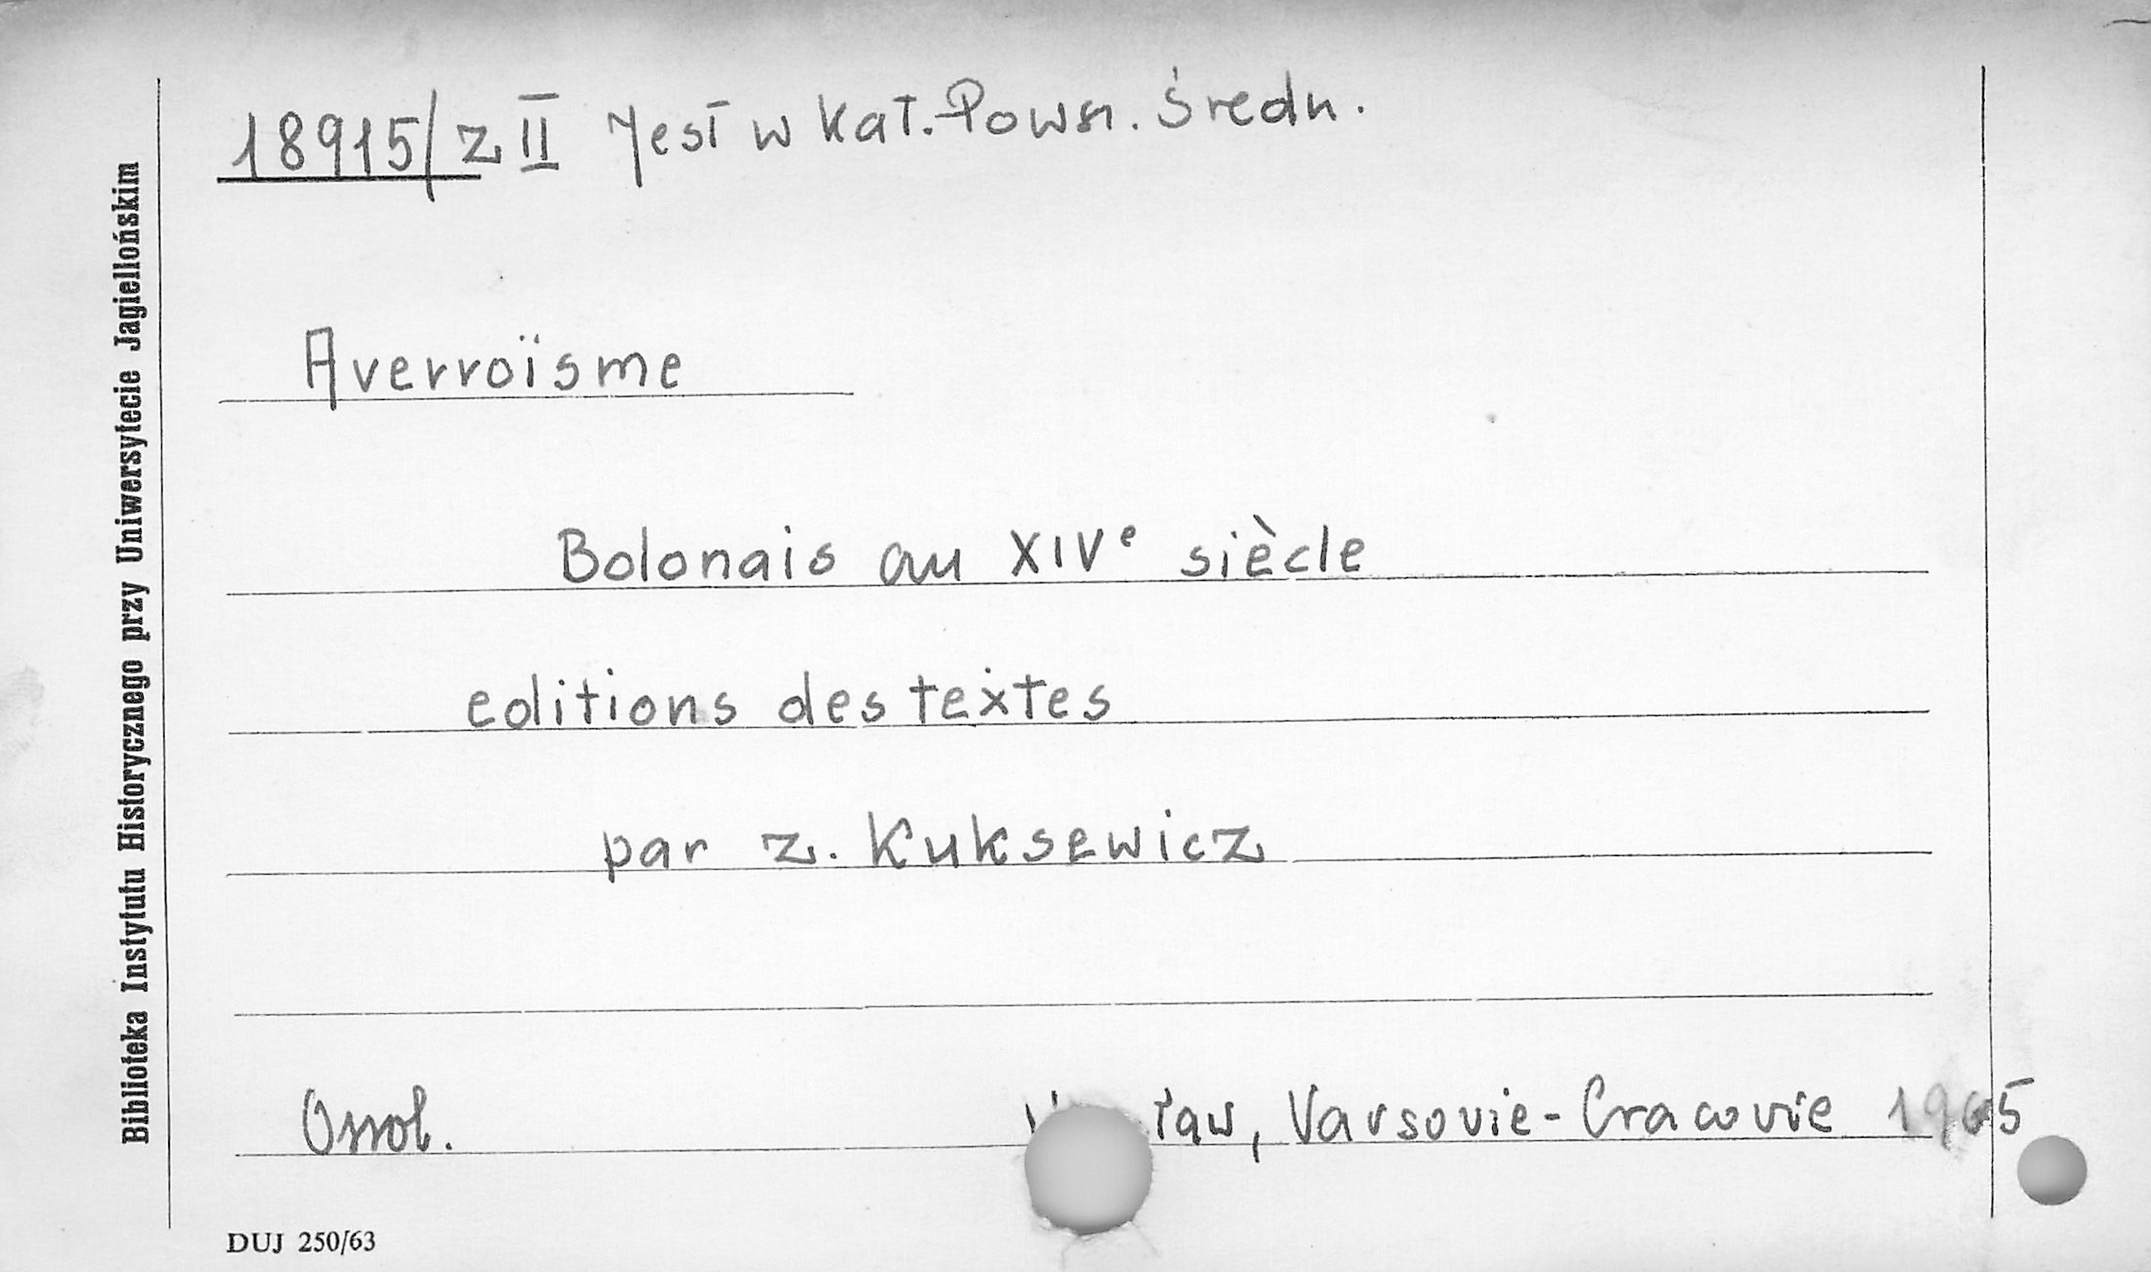 18915/z II Jest w Kat. Powsz. Średn.
Averroïsme
Bolonais au XIVᵉ siècle
editions des textes
par Z. Kuksewicz
Ossol. Varsovie-Cracovie 1965
DUJ 250/63
Biblioteka Instytutu Historycznego przy Uniwersytecie Jagiellońskim